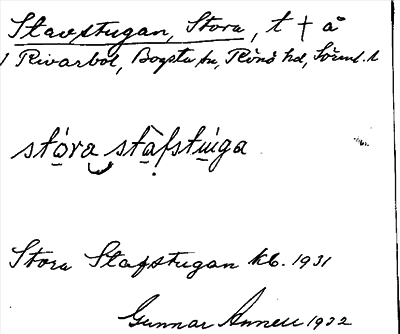 Stavstugan, Stora, t † å
1 Rivarbol, Bogsta sn, Rönö hd, Sörml. l
stóra stàfstúga
Stora Stafstugan kb. 1931
Gunnar Annell 1932